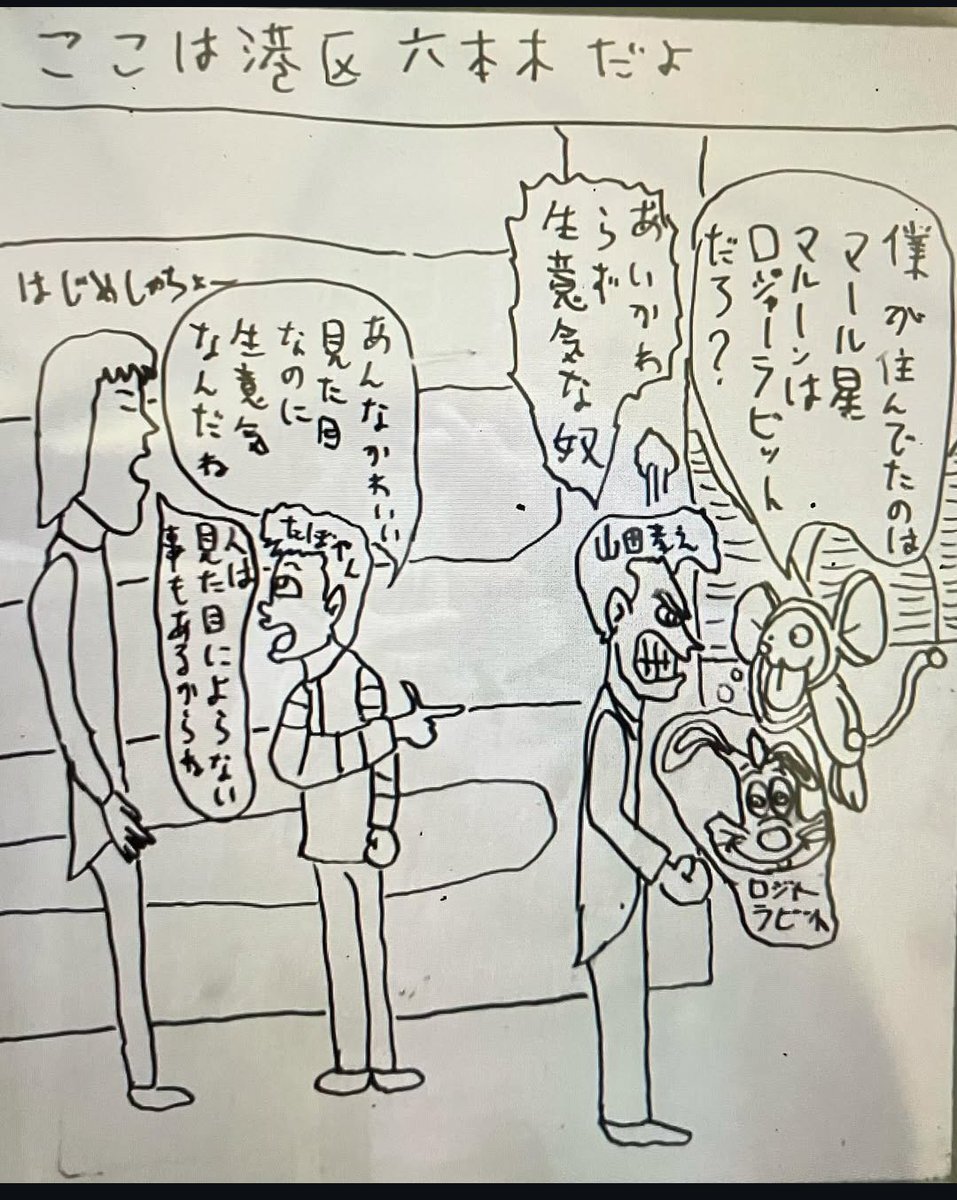 ここは港区六本木だよ
僕が住んでたのは
マール星
マルーンは
ロジャーラビット
だろ？
あいかわ
らず
生意気な奴
はじめしゃちょー
あんなかわいい
見た目
なのに
生意気
なんだね
人は
見た目によらない
事もあるからね
たぼやん
山田孝之
ロジャー
ラビット